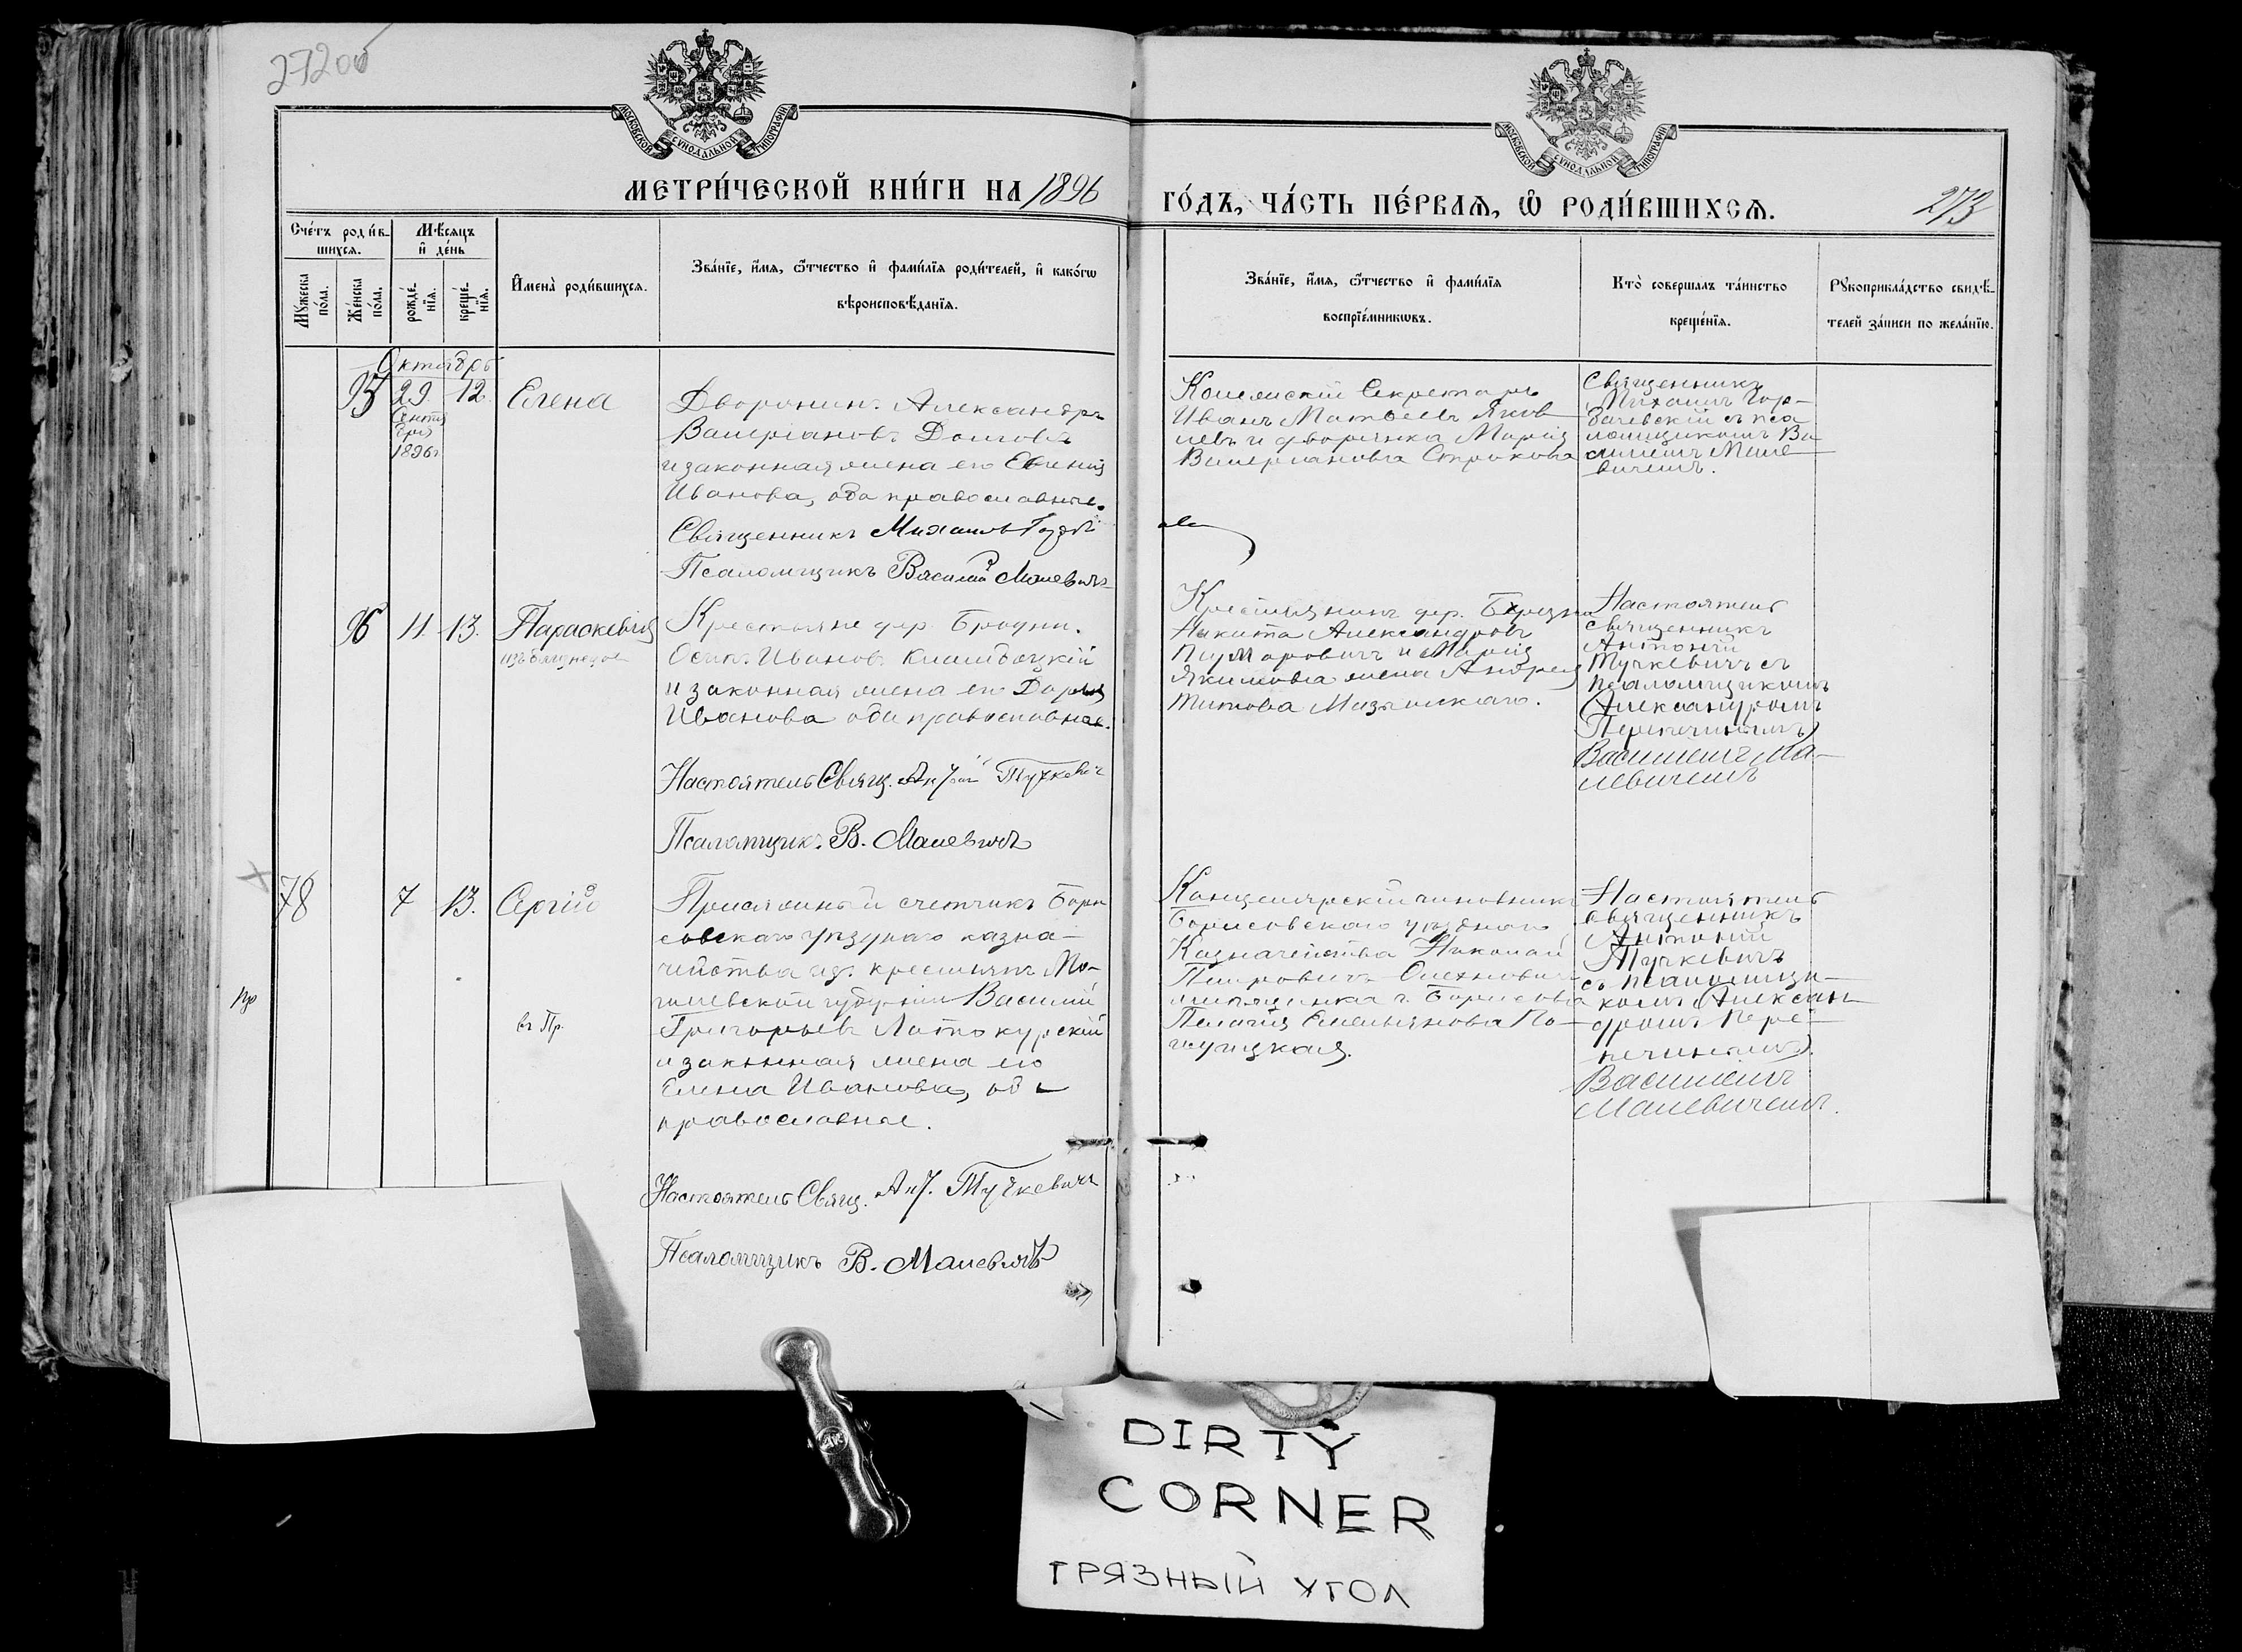 27200
МОСКОВСКОЙ СУНОДАЛЬНОЙ ТИПОГРАФІИ
МОСКОВСКОЙ СУНОДАЛЬНОЙ ТИПОГРАФІИ
МЕТРИ́ЧЕСКОЙ КНИ́ГИ НА 1896
ГО́ДЪ, ЧА́СТЬ ПЕ́РВАѦ, Ѽ РОДИ́ВШИХСѦ.
273
Сче́тъ роди́в-
шихсѧ.
Мѣ́сѧцъ
и҆ де́нь
Мꙋ́жеска
по́ла.
Же́нска
по́ла.
рожде́-
нїѧ.
креще́-
нїѧ.
И҆мена̀ роди́вшихсѧ.
Зва́нїе, и҆́мѧ, ѻ҆́тчество и҆ фами́лїѧ роди́телей, и҆ како́гѡ
вѣроисповѣ́данїѧ.
Зва́нїе, и҆́мѧ, ѻ҆́тчество и҆ фами́лїѧ
воспрїе́мникѡвъ.
Кто̀ соверша́лъ та́инство
креще́нїѧ.
Рꙋкоприкла́дство свидѣ́-
телей за́писи по жела́нїю.
Октябрь
95 29 12. Елена
Сентя
бря
1896 г
Дворянинъ Александръ
Валеріановъ Долговъ
и законная жена его Евгенія
Иванова, оба православные.
Священникъ Михаилъ
Псаломщикъ Василій Малевичъ
Коллежскій Секретарь
Иванъ Матвеевъ Яков-
левъ и дворянка Марія
Валеріановна Строкова
Священникъ
Михаилъ Гор-
бачевскій съ пса
ломщикомъ Ва
силіемъ Мале
вичемъ.
96 11. 13. Параскевія
изъ близнецовъ
Крестьяне дер. Бродни.
Осипъ Ивановъ
и законная жена его Дарья
Иванова оба православные.
Настоятель Свящ. Ант. Тучкевичъ
Псаломщикъ В. Малевичъ
Крестьянинъ дер.
Никита Александровъ
и Марія
Якимова жена Андрея
Титова
Настоятель
священникъ
Антоній
Тучкевичъ съ
псаломщикомъ
(Александромъ
Перепечинымъ)
Василіемъ Ма-
левичемъ
78 7 13. Сергій
въ Пр.
Пр
Присяжный счетчикъ Бори
совскаго уѣзднаго казна-
чейства изъ крестьянъ Мо-
гилевской губерніи Василій
Григорьевъ Латокурскій
и законная жена его
Елена Иванова, оба
православные.
Настоятель Свящ. Ант. Тучкевичъ
Псаломщикъ В. Малевичъ
Канцелярскій чиновникъ
Борисовскаго уѣзднаго
Казначейства Николай
Петровичъ
мѣщанка г. Борисова
Пелагія Емельянова
Настоятель
священникъ
Антоній
Тучкевичъ
съ псаломщи-
комъ (Алексан
дромъ Пере-
печинымъ).
Василіемъ
Малевичемъ.
DIRTY
CORNER
ГРЯЗНЫЙ УГОЛ